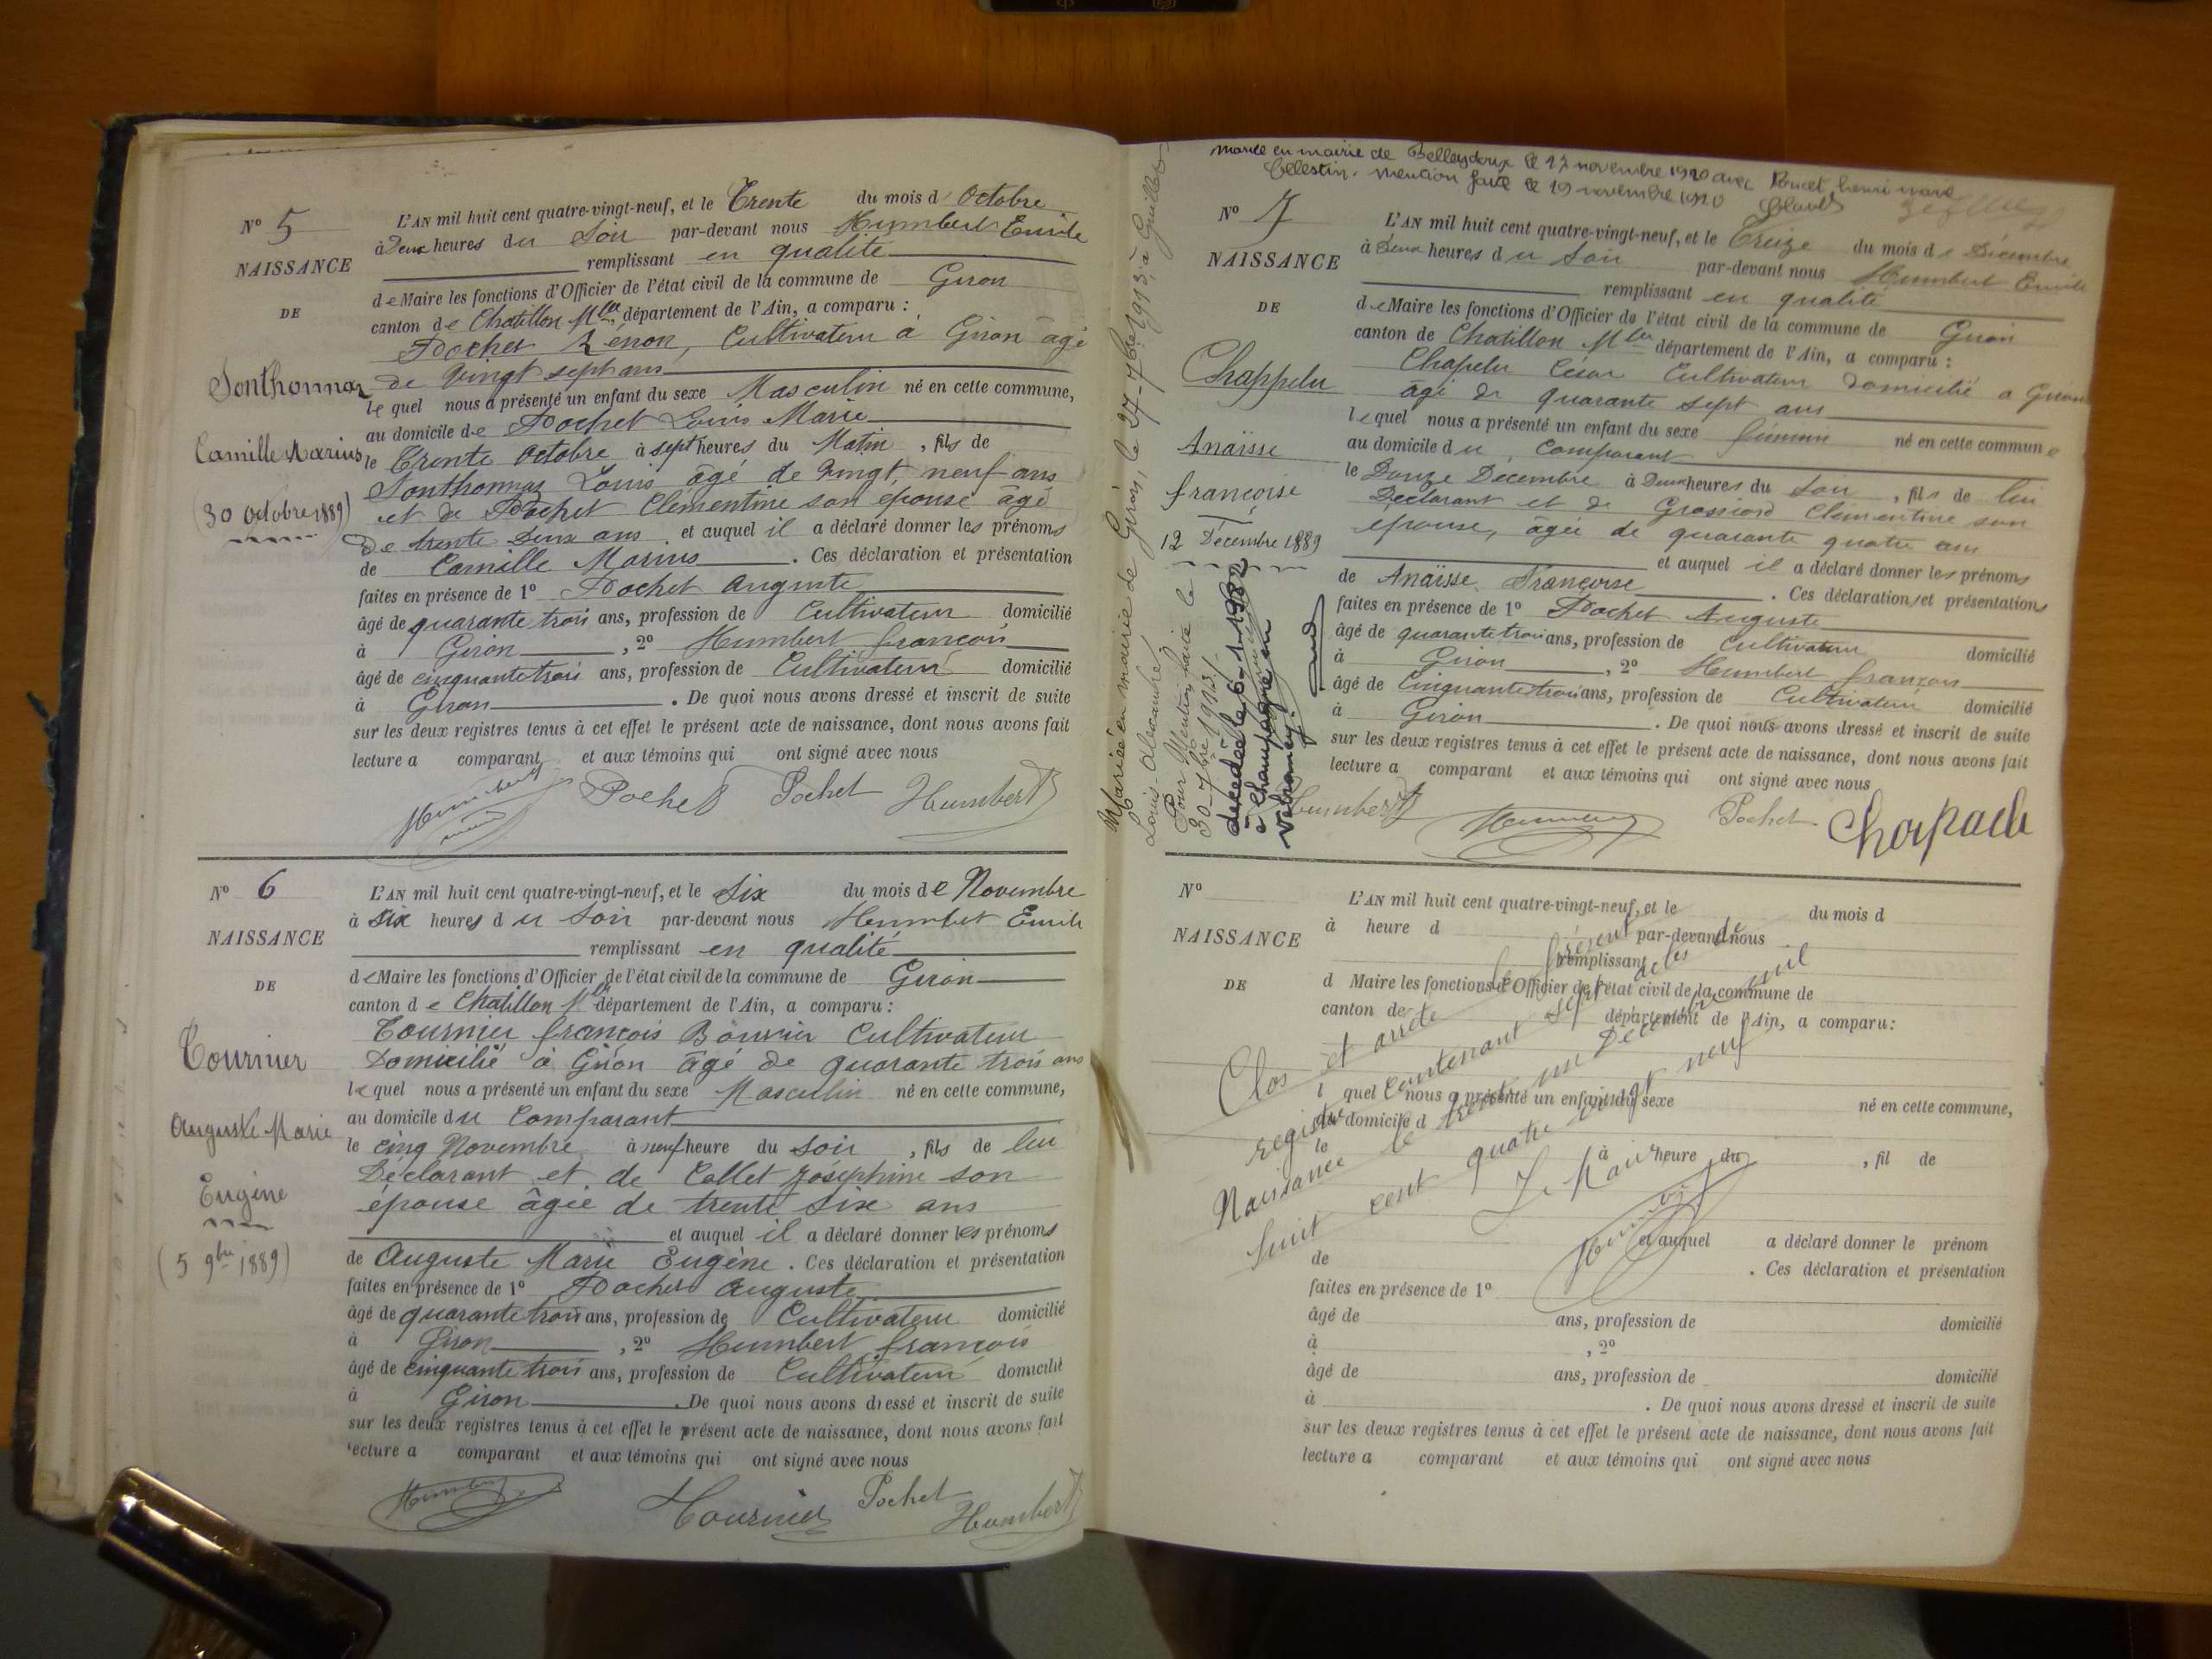 N° 5
NAISSANCE
DE
Sonthonnax
Camille Marius
(30 octobre 1889)
L'AN mil huit cent quatre-vingt-neuf, et le Trente du mois d' Octobre
à Deux heures du Soir par-devant nous Humbert Emile
remplissant en qualité
de Maire les fonctions d'Officier de l'état civil de la commune de Giron
canton de Chatillon Mlle département de l'Ain, a comparu :
Pochet Zénon, Cultivateur à Giron âgé
de vingt sept ans
lequel nous a présenté un enfant du sexe Masculin né en cette commune,
au domicile de Pochet Louis Marie
le Trente Octobre à sept heures du Matin, fils de
Sonthonnax Louis âgé de vingt neuf ans
et de Pochet Clémentine son epouse âgé
de trente deux ans et auquel il a déclaré donner les prénoms
de Camille Marius. Ces déclaration et présentation
faites en présence de 1° Pochet Auguste
âgé de quarante trois ans, profession de Cultivateur domicilié
à Giron, 2° Humbert françois
âgé de cinquante trois ans, profession de Cultivateur domicilié
à Giron. De quoi nous avons dressé et inscrit de suite
sur les deux registres tenus à cet effet le présent acte de naissance, dont nous avons fait
lecture a comparant et aux témoins qui ont signé avec nous
Humbert Pochet Pochet Humbert
N° 6
NAISSANCE
DE
Tournier
Auguste Marie
Eugène
(5 9bre 1889)
L'AN mil huit cent quatre-vingt-neuf, et le Six du mois de Novembre
à six heures du Soir par-devant nous Humbert Emile
remplissant en qualité
de Maire les fonctions d'Officier de l'état civil de la commune de Giron
canton de Chatillon Mlle département de l'Ain, a comparu :
Tournier françois Bouvier Cultivateur
Domicilié à Giron âgé de quarante trois ans
lequel nous a présenté un enfant du sexe Masculin né en cette commune,
au domicile du Comparant
le cinq Novembre à neuf heure du soir, fils de lui
Déclarant et de Collet Joséphine son
épouse âgée de trente six ans
et auquel il a déclaré donner les prénoms
de Auguste Marie Eugène. Ces déclaration et présentation
faites en présence de 1° Pochet Auguste
âgé de quarante trois ans, profession de Cultivateur domicilié
à Giron, 2° Humbert françois
âgé de cinquante trois ans, profession de Cultivateur domicilié
à Giron. De quoi nous avons dressé et inscrit de suite
sur les deux registres tenus à cet effet le présent acte de naissance, dont nous avons fait
lecture a comparant et aux témoins qui ont signé avec nous
Humbert Tournier Pochet Humbert
Mariée en mairie de Belleydoux le 17 novembre 1920 avec Poncet henri marie
Célestin. Mention faite le 19 novembre 1920
N° 7
NAISSANCE
DE
Chappelu
Anaïsse
françoise
12 Décembre 1889
Mariée en mairie de Giron, le 27-7bre 1913, à
Louis Alexandre
Pour Mention, faite le
30-7bre 1913.
décédée le 6-1-1982
à Champagne en
Valromey.
L'AN mil huit cent quatre-vingt-neuf, et le Treize du mois de Décembre
à Deux heures du Soir par-devant nous Humbert Emile
remplissant en qualité
de Maire les fonctions d'Officier de l'état civil de la commune de Giron
canton de Chatillon Mlle département de l'Ain, a comparu :
Chapelu César Cultivateur domicilié a Giron
âgé de quarante sept ans
lequel nous a présenté un enfant du sexe féminin né en cette commune
au domicile du Comparant
le Douze Décembre à Deux heures du Soir, fils de lui
Déclarant et de Grossiord Clémentine son
epouse, âgée de quarante quatre ans
et auquel il a déclaré donner les prénoms
de Anaïsse Françoise. Ces déclaration et présentation
faites en présence de 1° Pochet Auguste
âgé de quarante trois ans, profession de Cultivateur domicilié
à Giron, 2° Humbert françois
âgé de Cinquante trois ans, profession de Cultivateur domicilié
à Giron. De quoi nous avons dressé et inscrit de suite
sur les deux registres tenus à cet effet le présent acte de naissance, dont nous avons fait
lecture a comparant et aux témoins qui ont signé avec nous
Humbert Humbert Pochet
N°
NAISSANCE
DE
L'AN mil huit cent quatre-vingt-neuf, et le du mois d
à heure d par-devant nous
remplissant
d Maire les fonctions d'Officier de l'état civil de la commune de
canton de département de l'Ain, a comparu :
l quel nous a présenté un enfant du sexe né en cette commune,
au domicile d
le à heure du , fil de
et auquel a déclaré donner le prénom
de . Ces déclaration et présentation
faites en présence de 1°
âgé de ans, profession de domicilié
à , 2°
âgé de ans, profession de domicilié
à . De quoi nous avons dressé et inscrit de suite
sur les deux registres tenus à cet effet le présent acte de naissance, dont nous avons fait
lecture a comparant et aux témoins qui ont signé avec nous
Clos et arrêté le présent
registre contenant sept actes de
Naissance le trente un Décembre mil
huit cent quatre vingt neuf
Le Maire
Humbert